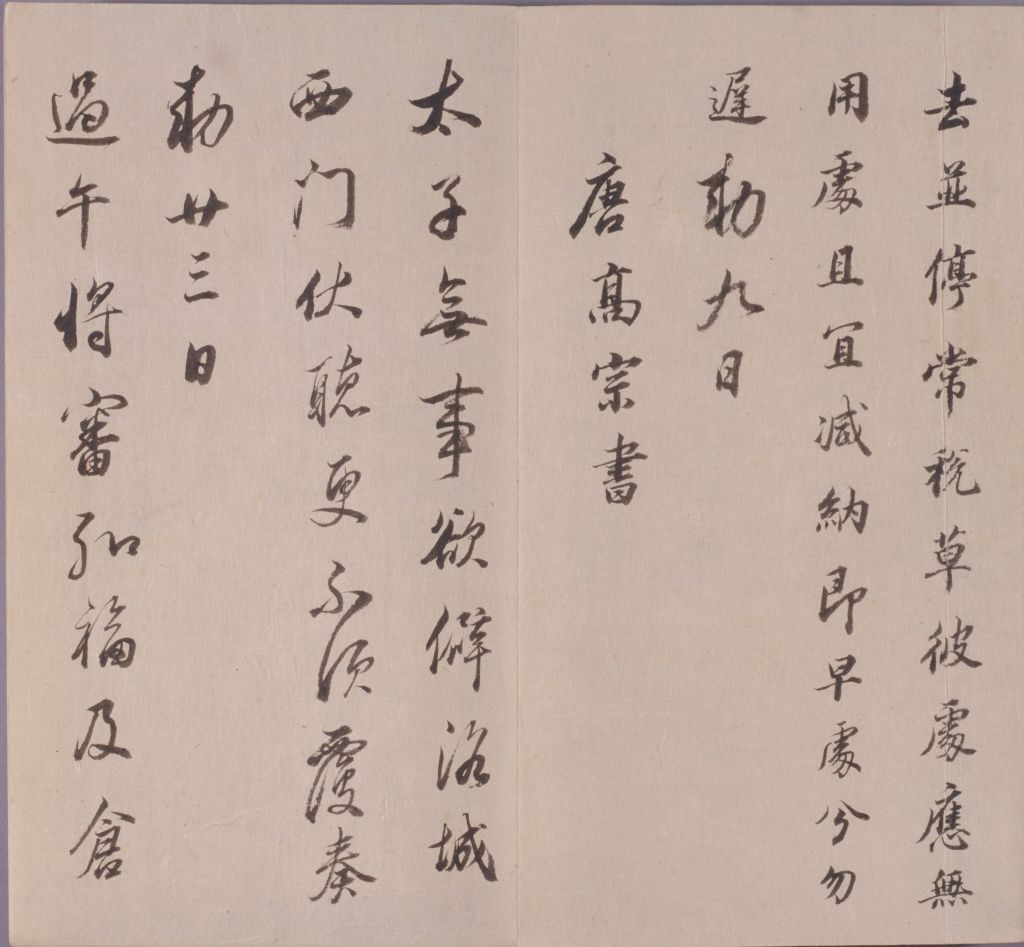 去並停常稅草彼處應無
用處且宜減納即早處分勿
遲勅九日
唐高宗書
太子無事欲僻洛城
西门仗聽更不須覆奏
勅廿三日
過午將審弘福及倉